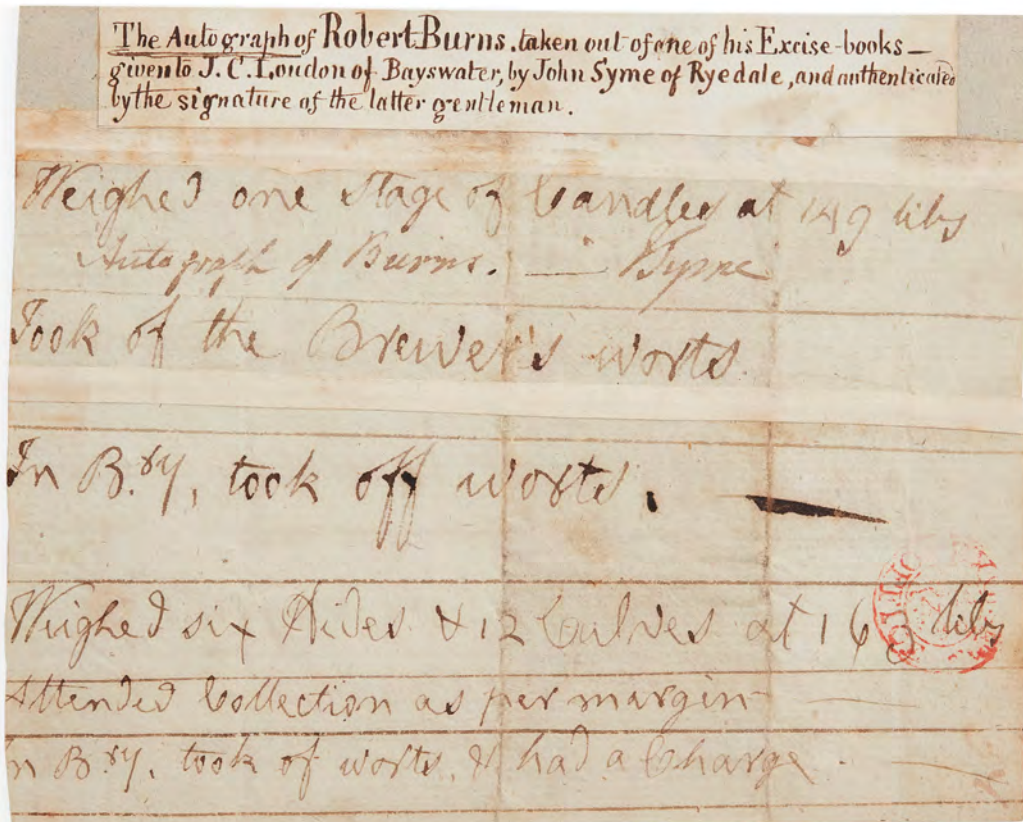 The Autograph of Robert Burns, taken out of one of his Excise-books—
given to J. C. Loudon of Bayswater, by John Syme of Ryedale, and authenticated
by the signature of the latter gentleman.
Weighed one Stage of Candles at 149 libs
Autograph of Burns. — JSyme
Took of the Brewer's worts.
In B.ry, took off worts. —
Weighed six Hides & 12 Calves at 168 libs
Attended Collection as per margin —
In B.ry. took of worts, & had a Charge. —